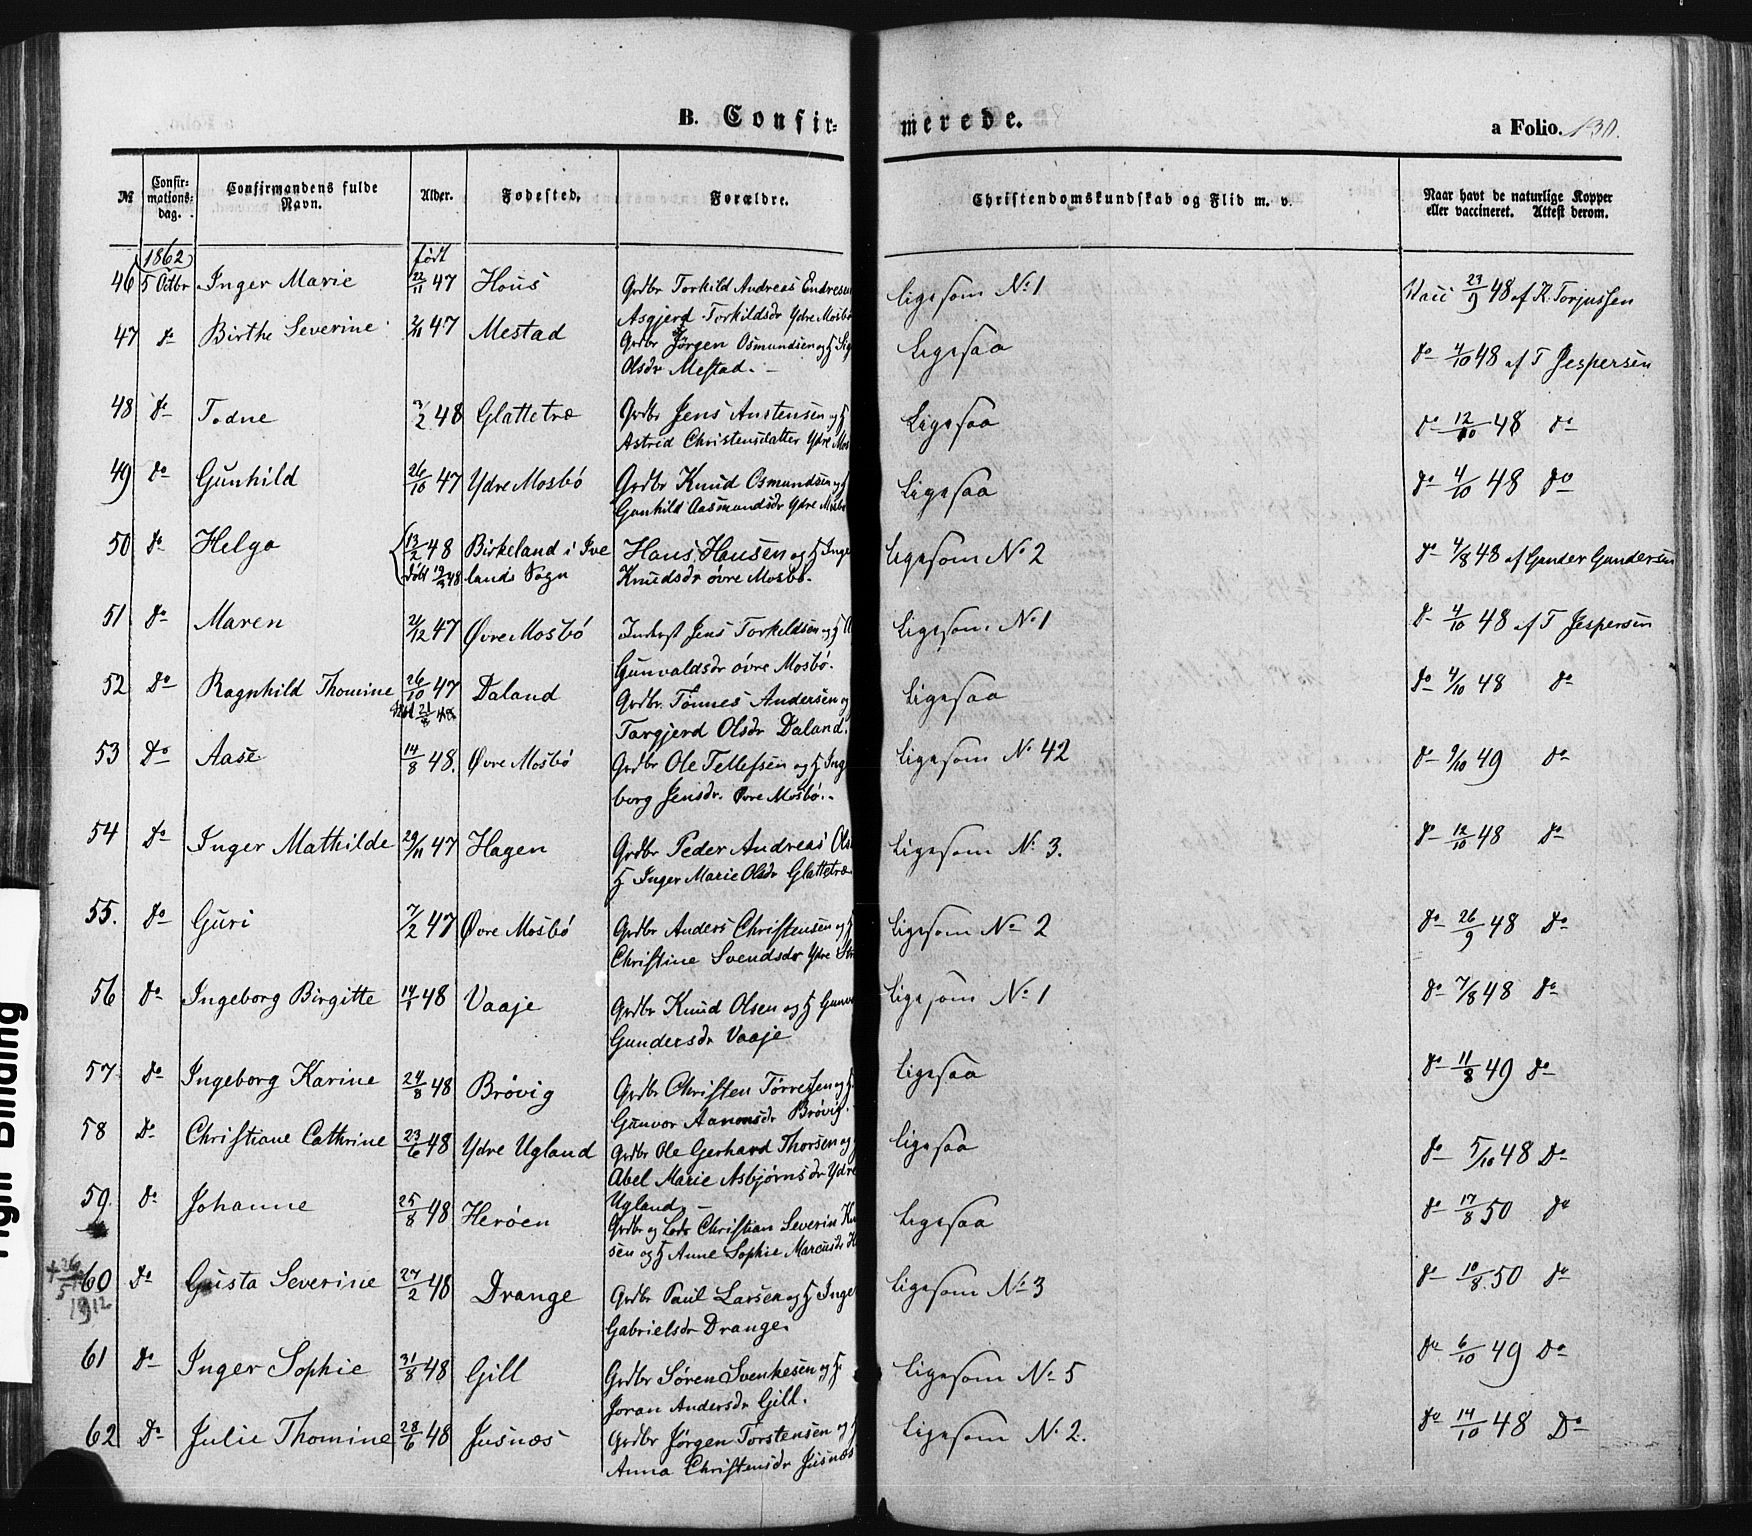 B. Confir-
merede.
a Folio. 130.
№
Confir-
mations-
dag.
Confirmandens fulde
Navn.
Alder.
Fødested.
Forældre.
Christendomskundskab og Flid m. v.
Naar havt de naturlige Kopper
eller vaccineret. Attest derom.
1862
født
46 5 Octbr Inger Marie 22/11 47 Hous Grdbr Torkild Andreas Endresen ligesom No 1 Vacc 23/9 48 af K. Torjussen
Asgjerd Torkildsdr Ydre Mosbø
47 do Birthe Severine 2/11 47 Mestad Grdbr Jørgen Osmundsen og H Ligesaa do 4/10 48 af T Jespersen
Olsdr Mestad.
48 do Todne 2 48 Glattetræ Grdbr Jens Anstensen og H Ligesaa do 12/10 48 do
Astrid Christensdatter Ydre Mos
49 do Gunhild 26/10 47 Ydre Mosbø Grdbr Knud Osmundsen og H Ligesaa do 4/10 48 do
Gunhild Aasmundsdr Ydre Mosbø
50 do Helga 13/2 48 Birkeland i Ive Hans Hansen og H Inge ligesom No 2 do 4/8 48 af Gunder Gundersen
døbt 19/2 48 lands Sogn Knudsdr øvre Mosbø.
51 do Maren 2/12 47 Øvre Mosbø Inderst Jens Torkildsen og H ligesom No 1 do 4/10 48 af T Jespersen
Gunvaldsdr øvre Mosbø.
52 Do Ragnhild Thomine 26/10 47 Daland Grdbr. Tønnes Andersen og ligesaa do 4/10 48 do
døbt 21/8 48 Targjerd Olsdr Daland.
53 Do Aase 14/8 48. Øvre Mosbø Grdbr Ole Tellefsen og H Inge ligesom No 42 do 9/10 49 do
borg Jensdr. Øvre Mosbø.
54 Do Inger Mathilde 29/11 47 Hagen Grdbr Peder Andreas Ols ligesom No 3. do 12/10 48 do
H Inger Marie Olsdr Glattetræ
55. Do Guri 7/2 47 Øvre Mosbø Grdbr Anders Christensen og H ligesom No 2 do 26/9 48 Do
Christine Svendsdr Ydre
56 Do Ingeborg Birgitte 14/1 48 Vaaje Grdbr Knud Olsen og H Gunv ligesom No 1 do 7/8 48 do
Gundersdr Vaaje
57. do Ingeborg Karine 24/8 48 Brøvig Grdbr Christen Tørressen og H ligesaa do 11/8 49 do
Gunvor Aanonsdr Brøvig.
58 Do Christiane Cathrine 23/6 48 Ydre Ugland Grdbr Ole Gerhard Thorsen og ligesaa do 5/10 48 Do
Abel Marie Asbjørnsdr Ydre
Ugland
59. Do Johanne 25/8 48 Herøen Grdbr og Lods Christian Severin Kn ligesaa do 17/8 50 do
sen og H Anne Sophie Marcusdr H
60 Do Gusta Severine 27/2 48 Drange Grdbr Paul Larsen og H Inge ligesom No 3 do 10/8 50 do
Gabrielsdr Drange.
+ 26/5 1912
61 Do Inger Sophie 31/8 48 Gill Grdbr Søren Svenkesen og H ligesom No 5 do 6/10 49 Do
Joran Andersdr Gill.
62 Do Julie Thomine 28/6 48 Jusnæs Grdbr Jørgen Torstensen og H ligesom No 2. do 14/10 48 Do
Anna Christensdr Jusnæs
Tight Binding